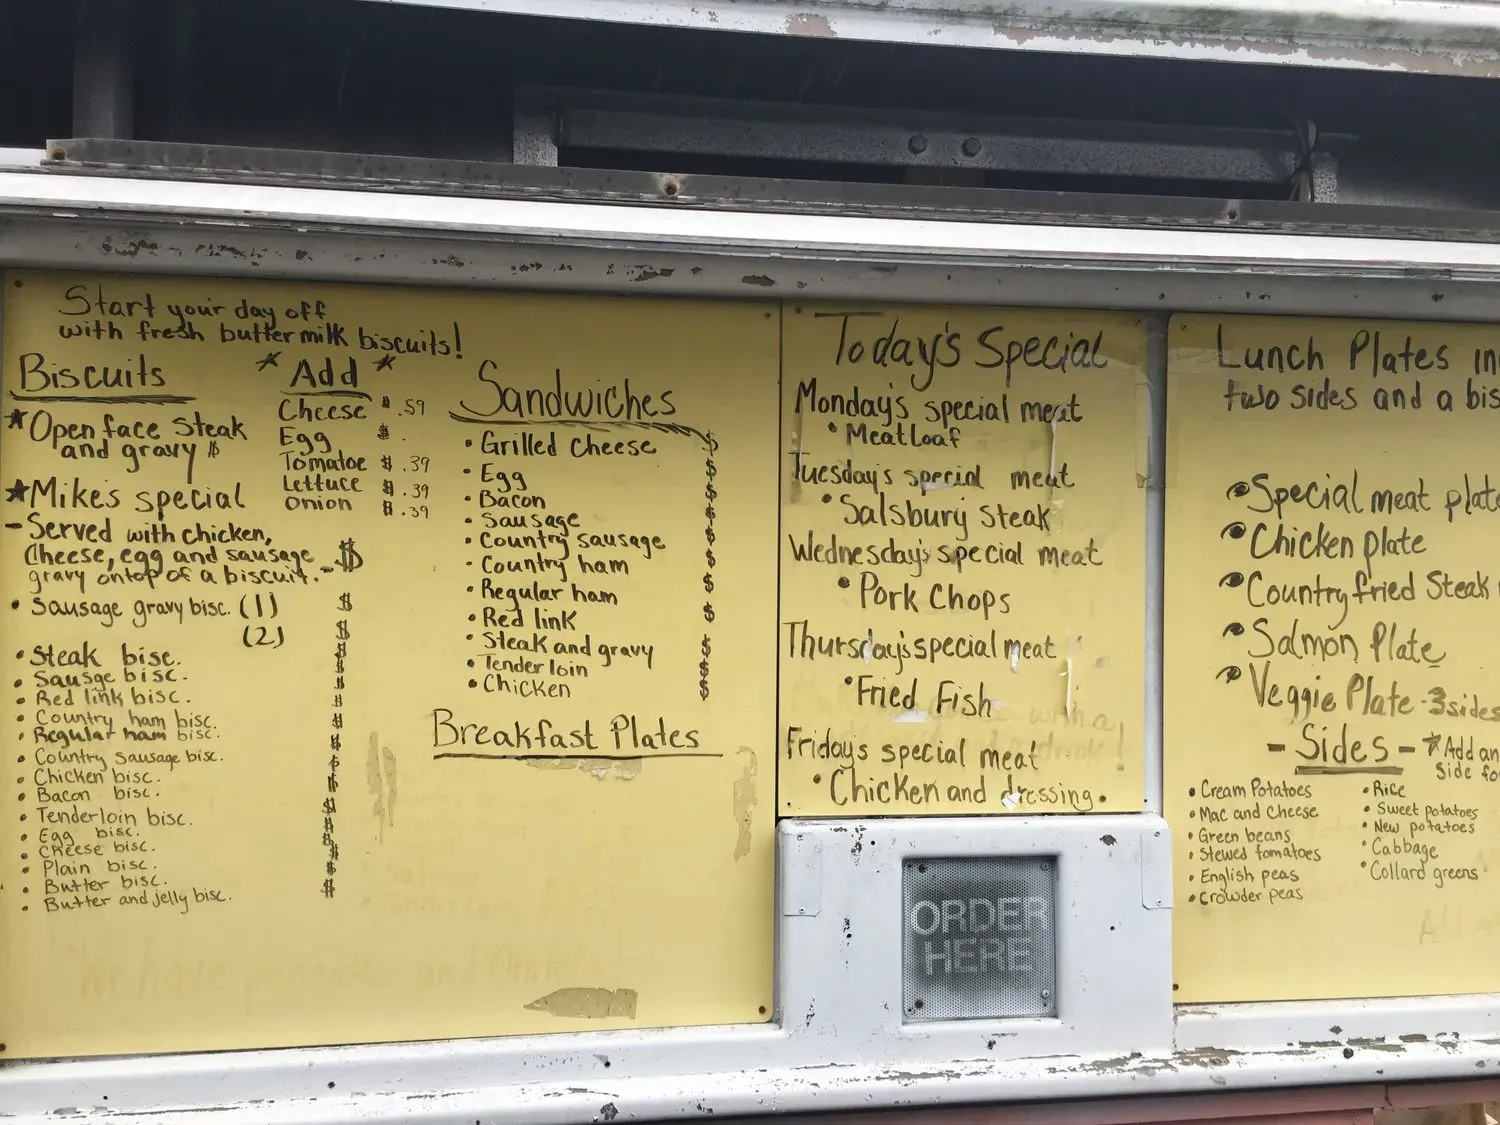 Start your day off
with fresh buttermilk biscuits!
Biscuits
* Open face steak
and gravy $
* Mike's special
- Served with chicken,
cheese, egg and sausage
gravy ontop of a biscuit. - $
• Sausage gravy bisc. (1) $
(2) $
• Steak bisc. $
• Sausge bisc. $
• Red link bisc. $
• Country ham bisc. $
• Regular ham bisc. $
• Country Sausage bisc. $
• Chicken bisc. $
• Bacon bisc. $
• Tenderloin bisc. $
• Egg bisc. $
• Cheese bisc. $
• Plain bisc. $
• Butter bisc. $
• Butter and jelly bisc. $
* Add *
Cheese $ .59
Egg $ .
Tomatoe $ .39
Lettuce $ .39
Onion $ .39
Sandwiches
• Grilled Cheese $
• Egg $
• Bacon $
• Sausage $
• Country sausage $
• Country ham $
• Regular ham $
• Red link $
• Steak and gravy $
• Tenderloin $
• Chicken $
Breakfast Plates
Today's Special
Monday's special meat
• Meatloaf
Tuesday's special meat
• Salsbury Steak
Wednesday's special meat
• Pork Chops
Thursday's special meat
• Fried Fish
Friday's special meat
• Chicken and dressing.
ORDER
HERE
Lunch Plates in
two sides and a bis
• Special meat plate
• Chicken plate
• Country fried Steak
• Salmon Plate
• Veggie Plate - 3 sides
- Sides - * Add an
Side fo
• Cream Potatoes
• Mac and Cheese
• Green beans
• Stewed tomatoes
• English peas
• Crowder peas
• Rice
• Sweet potatoes
• New potatoes
• Cabbage
• Collard greens